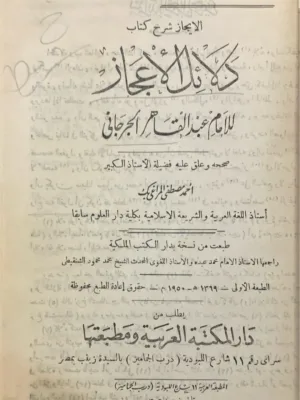 الإيجاز شرح كتاب
دلائل الإعجاز
للإمام عبد القاهر الجرجاني
صححه وعلق عليه فضيلة الأستاذ الكبير
أحمد مصطفى المراغي بك
أستاذ اللغة العربية والشريعة الإسلامية بكلية دار العلوم سابقا
طبعت من نسخة بدار الكتب الملكية
راجعها الأستاذ الإمام محمد عبده والأستاذ اللغوي المحدث الشيخ محمد محمود الشنقيطي
الطبعة الأولى ١٣٦٩ هـ - ١٩٥٠ م حقوق إعادة الطبع محفوظة
يطلب من
دار المكتبة العربية ومطبعتها
سراي رقم ١١ شارع اللبودية (درب الجماميز) بالسيدة زينب بمصر
المطبعة العربية ١١ شارع اللبودية (درب الجماميز)